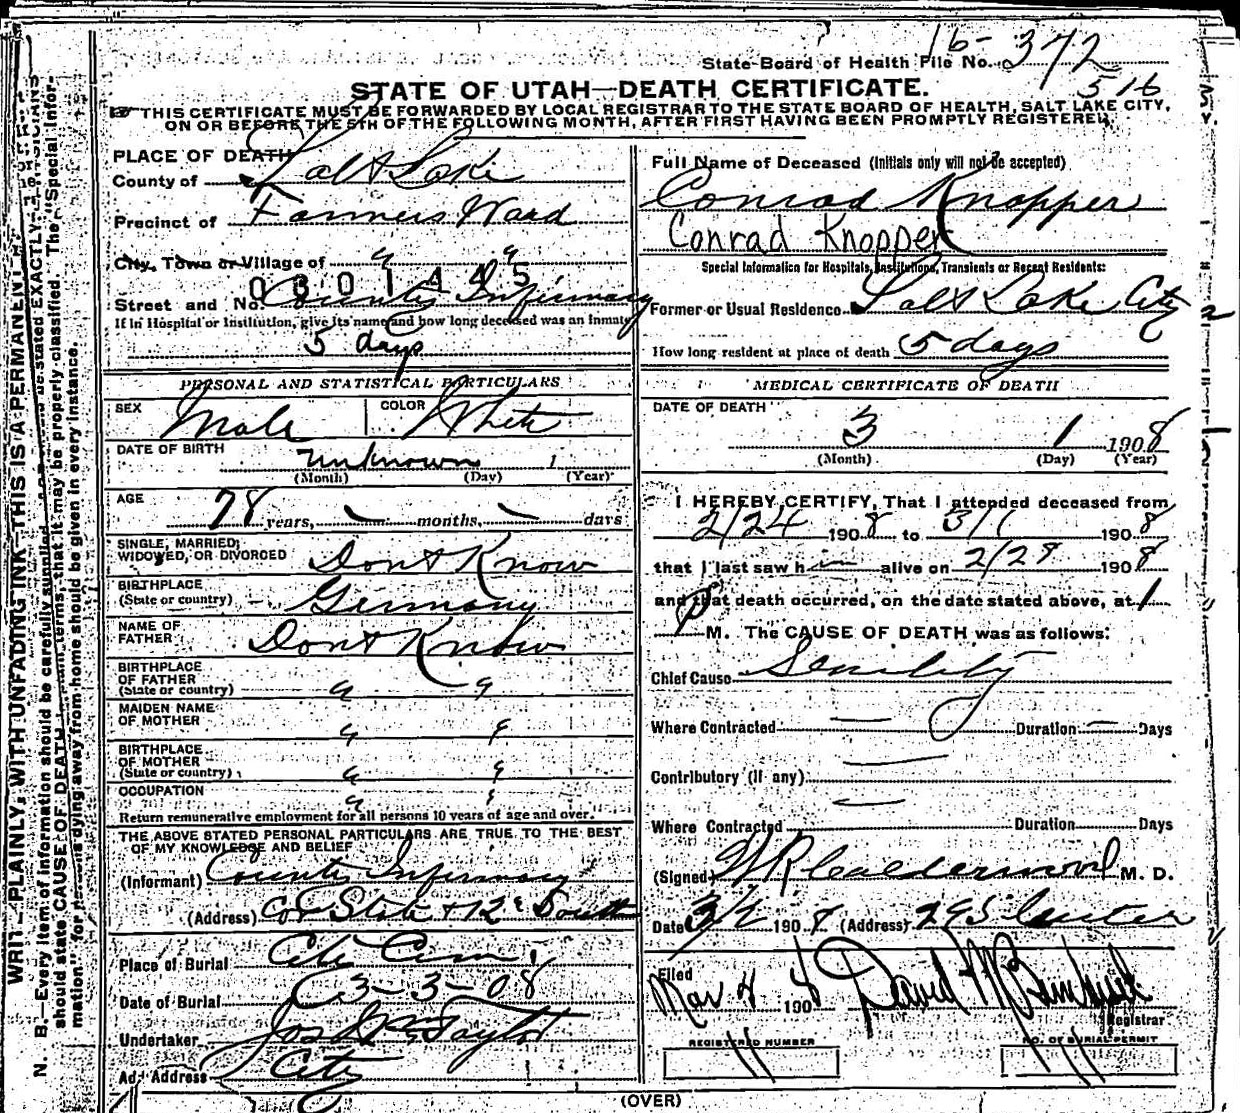 16-372
State Board of Health File No.
516
STATE OF UTAH—DEATH CERTIFICATE.
THIS CERTIFICATE MUST BE FORWARDED BY LOCAL REGISTRAR TO THE STATE BOARD OF HEALTH, SALT LAKE CITY,
ON OR BEFORE THE 5TH OF THE FOLLOWING MONTH, AFTER FIRST HAVING BEEN PROMPTLY REGISTERED.
PLACE OF DEATH
County of Salt Lake
Precinct of Farmers Ward
City, Town or Village of " "
0301445
Street and No. County Infirmary
If in Hospital or Institution, give its name and how long deceased was an inmate
5 days
Full Name of Deceased (Initials only will not be accepted)
Conrad Knopper
Conrad Knopper
Special Information for Hospitals, Institutions, Transients or Recent Residents:
Former or Usual Residence Salt Lake City
How long resident at place of death 5 days
PERSONAL AND STATISTICAL PARTICULARS
SEX Male COLOR White
DATE OF BIRTH unknown 1
(Month) (Day) (Year)
AGE 78 years, — months, — days
SINGLE, MARRIED, WIDOWED, OR DIVORCED Dont Know
BIRTHPLACE (State or country) Germany
NAME OF FATHER Dont Know
BIRTHPLACE OF FATHER (State or country) " "
MAIDEN NAME OF MOTHER " "
BIRTHPLACE OF MOTHER (State or country) " "
OCCUPATION " "
Return remunerative employment for all persons 10 years of age and over.
THE ABOVE STATED PERSONAL PARTICULARS ARE TRUE TO THE BEST
OF MY KNOWLEDGE AND BELIEF
(Informant) County Infirmary
(Address) Cor State & 12" South
Place of Burial City Cem.
Date of Burial 3-3-08
Undertaker Jos Taylor
Address City
MEDICAL CERTIFICATE OF DEATH
DATE OF DEATH
3 1 1908
(Month) (Day) (Year)
I HEREBY CERTIFY, That I attended deceased from
2/24 1908 to 3/1 1908
that I last saw him alive on 2/29 1908
and that death occurred, on the date stated above, at 1
P M. The CAUSE OF DEATH was as follows:
Chief Cause Senility
Where Contracted — Duration — Days
Contributory (if any) —
Where Contracted — Duration Days
(Signed) W R Calderwood M. D.
Date 3/2 1908 (Address)
Filed
Mar 4 1908 David
Registrar
REGISTERED NUMBER
11
NO. OF BURIAL PERMIT
11
(OVER)
N. B.—Every item of information should be carefully supplied.
should state CAUSE OF DEATH in plain terms, that it may be properly classified. The "Special Infor-
mation" for persons dying away from home should be given in every instance.